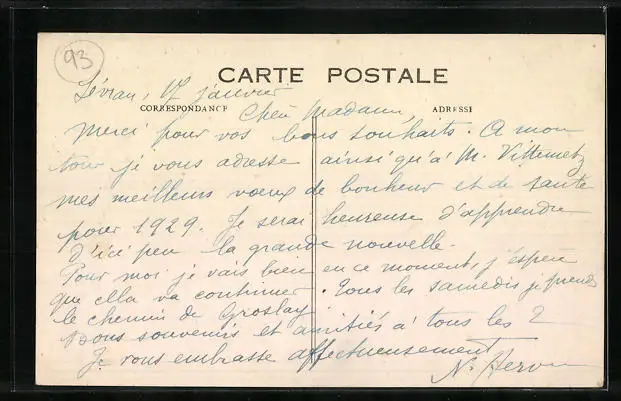 93
CARTE POSTALE
CORRESPONDANCE ADRESSE
Sévran, 17 janvier
Chère Madame,
Merci pour vos bons souhaits. A mon
tour je vous adresse ainsi qu'à M. Villemetz
mes meilleurs voeux de bonheur et de santé
pour 1929. Je serai heureuse d'apprendre
d'ici peu la grande nouvelle.
Pour moi je vais bien en ce moment, j'espère
que cela va continuer. Tous les samedis je prends
le chemin de Groslay.
Bons souvenirs et amitiés à tous les 2
Je vous embrasse affectueusement
N.